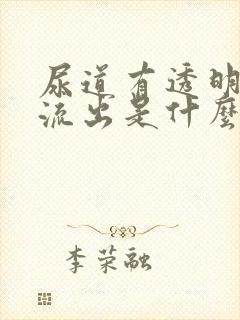 尿道有透明
流出是什麼
李荣融